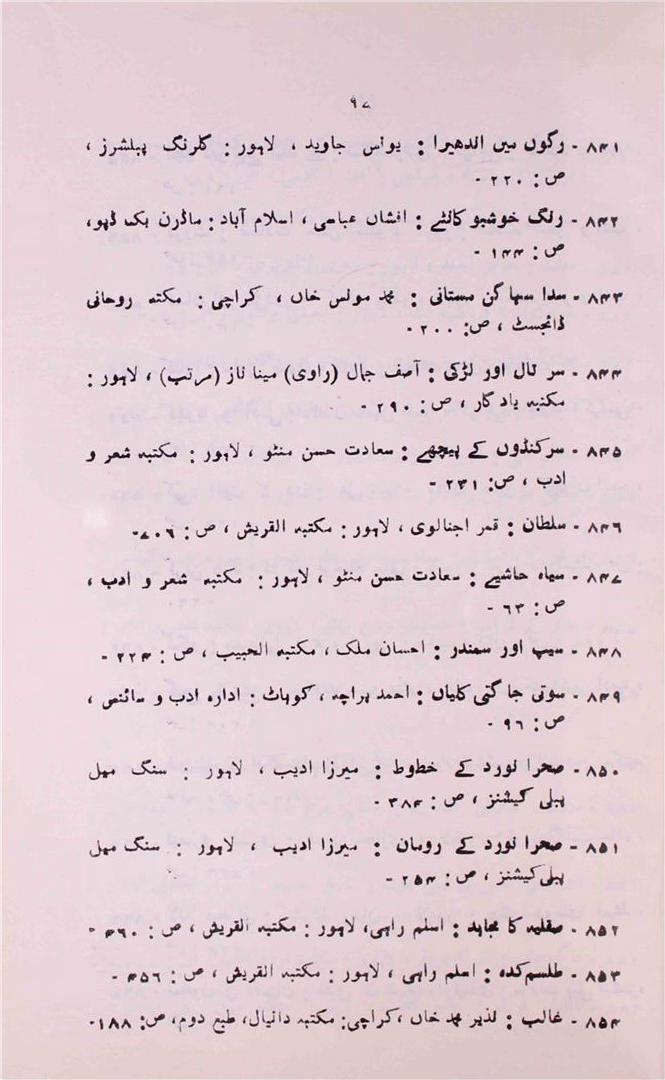 ۹۷
۸۴۱ - رگوں میں اندھیرا : یونس جاوید ، لاہور : گلرنگ پبلشرز ،
ص : ۲۲۰ -
۸۴۲ - رنگ خوشبو کانٹے : افشاں عباسی ، اسلام آباد : ماڈرن بک ڈپو،
ص : ۱۴۴ -
۸۴۳ - سدا سہاگن مستانی : محمد مونس خاں ، کراچی : مکتبہ روحانی
ڈائجسٹ ، ص: ۲۰۰ -
۸۴۴ - سر تال اور لڑکی : آصف جمال (راوی) مینا ناز (مرتب) ، لاہور :
مکتبہ یادگار ، ص : ۲۹۰ -
۸۴۵ - سرکنڈوں کے پیچھے : سعادت حسن منٹو ، لاہور : مکتبہ شعر و
ادب ، ص: ۲۳۱ -
۸۴۶ - سلطان : قمر اجنالوی ، لاہور : مکتبہ القریش ، ص : ۷۰۶-
۸۴۷ - سیاہ حاشیے : سعادت حسن منٹو ، لاہور : مکتبہ شعر و ادب ،
ص : ۶۳ -
۸۴۸ - سیپ اور سمندر : احسان ملک ، مکتبہ الحبیب ، ص : ۲۲۴ -
۸۴۹ - سوتی جاگتی کلیاں : احمد پراچہ ، کوہاٹ : ادارہ ادب و سائنس ،
ص : ۹۶ -
۸۵۰ - صحرا نورد کے خطوط : میرزا ادیب ، لاہور : سنگ میل
پبلی کیشنز ، ص : ۳۸۴ -
۸۵۱ - صحرا نورد کے رومان : میرزا ادیب ، لاہور : سنگ میل
پبلی کیشنز ، ص : ۲۵۴ -
۸۵۲ - صقلیہ کا مجاہد : اسلم راہی، لاہور : مکتبہ القریش ، ص : ۳۶۰ -
۸۵۳ - طلسم کدہ : اسلم راہی ، لاہور : مکتبہ القریش ، ص : ۴۵۶ -
۸۵۴ - غالب : نذیر محمد خاں ،کراچی: مکتبہ دانیال، طبع دوم، ص: ۱۸۸-